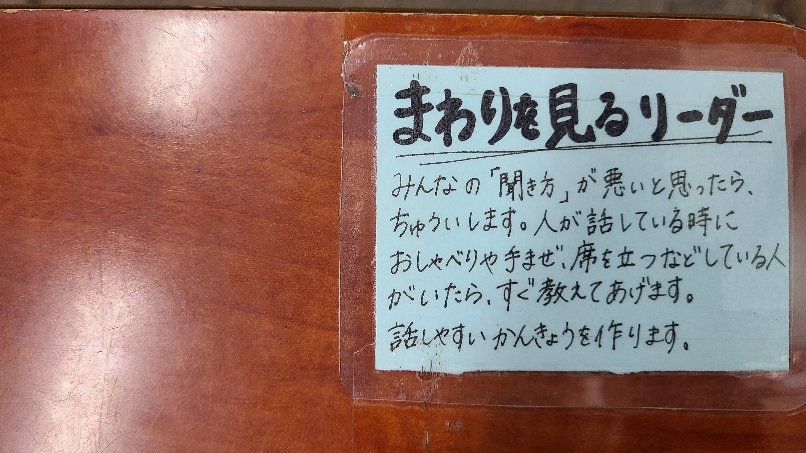 まわりを見るリーダー
みんなの「聞き方」が悪いと思ったら、
ちゅういします。人が話している時に
おしゃべりや手まぜ、席を立つなどしている人
がいたら、すぐ教えてあげます。
話しやすいかんきょうを作ります。